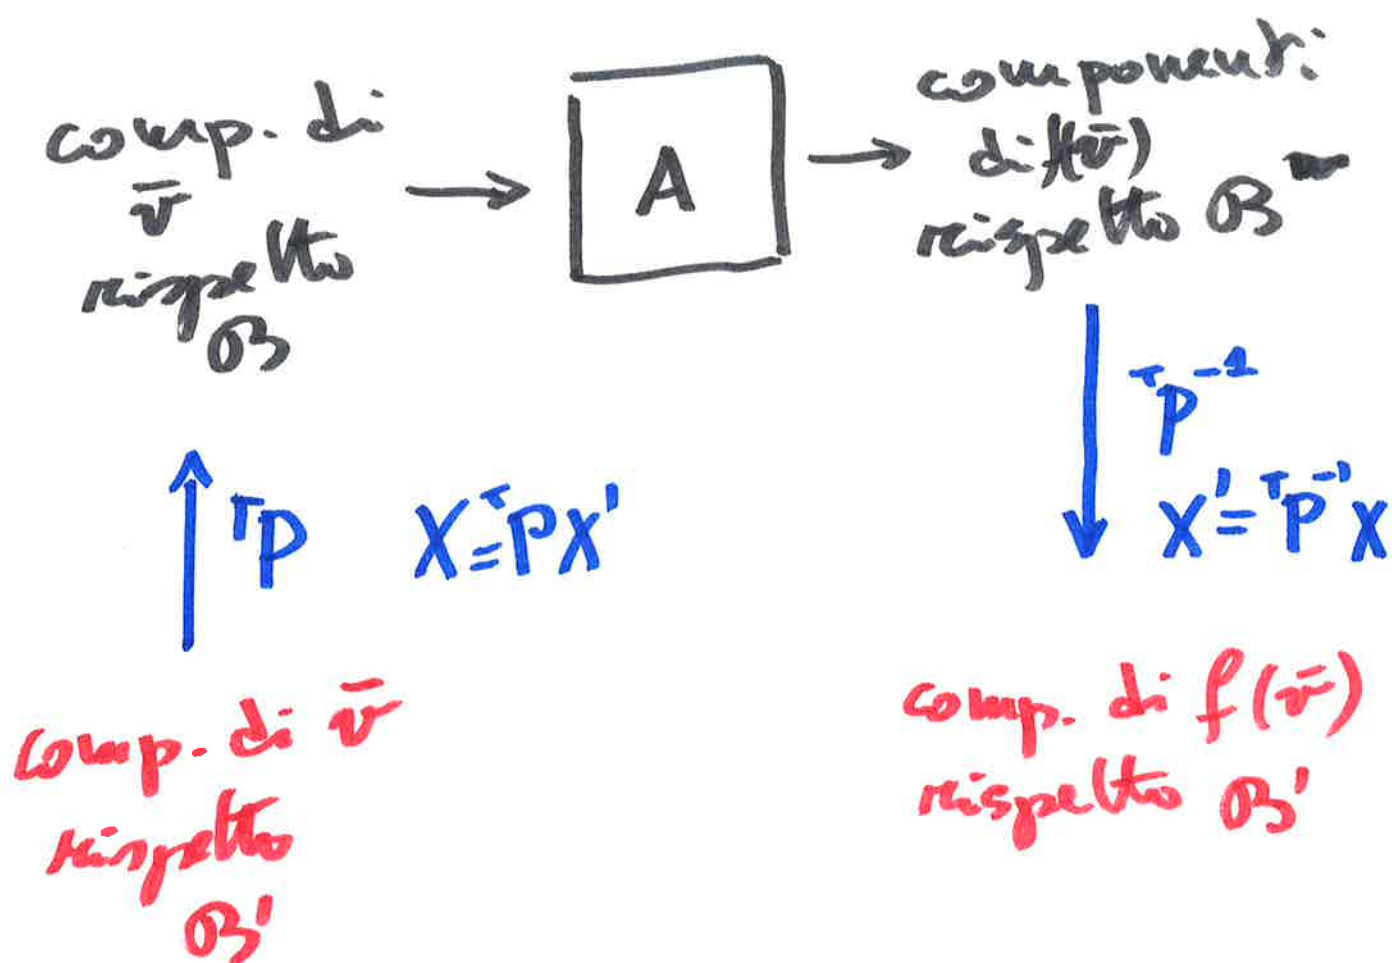 comp. di
v̄
rispetto
B
A
componenti
di f(v̄)
rispetto B
ᵀP
X = ᵀPX'
ᵀP⁻¹
X' = ᵀP⁻¹X
comp. di v̄
rispetto
B'
comp. di f(v̄)
rispetto B'